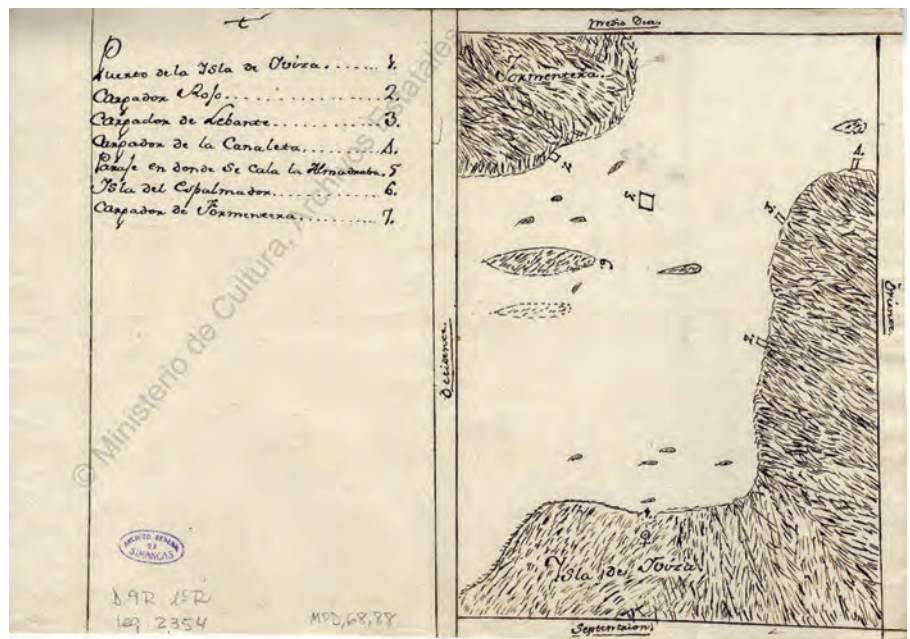 Puerto de la Isla de Iviza. . . . . . 1.
Carpador Roso. . . . . . . . . . . . . . 2.
Carpador de Lebante. . . . . . . . . . 3.
Carpador de la Canaleta. . . . . . . . 4.
Paraje en donde Se cala la Almadraba. 5
Isla del Espalmador. . . . . . . . . . 6.
Carpador de Formentera. . . . . . . . 7.
© Ministerio de Cultura, Archivos Estatales
ARCHIVO GENERAL
DE
SIMANCAS
leg 2354
MPD, 68, 88
Medio Dia.
Formentera.
Occidente.
Oriente.
Isla de Iviza.
Septentrion.